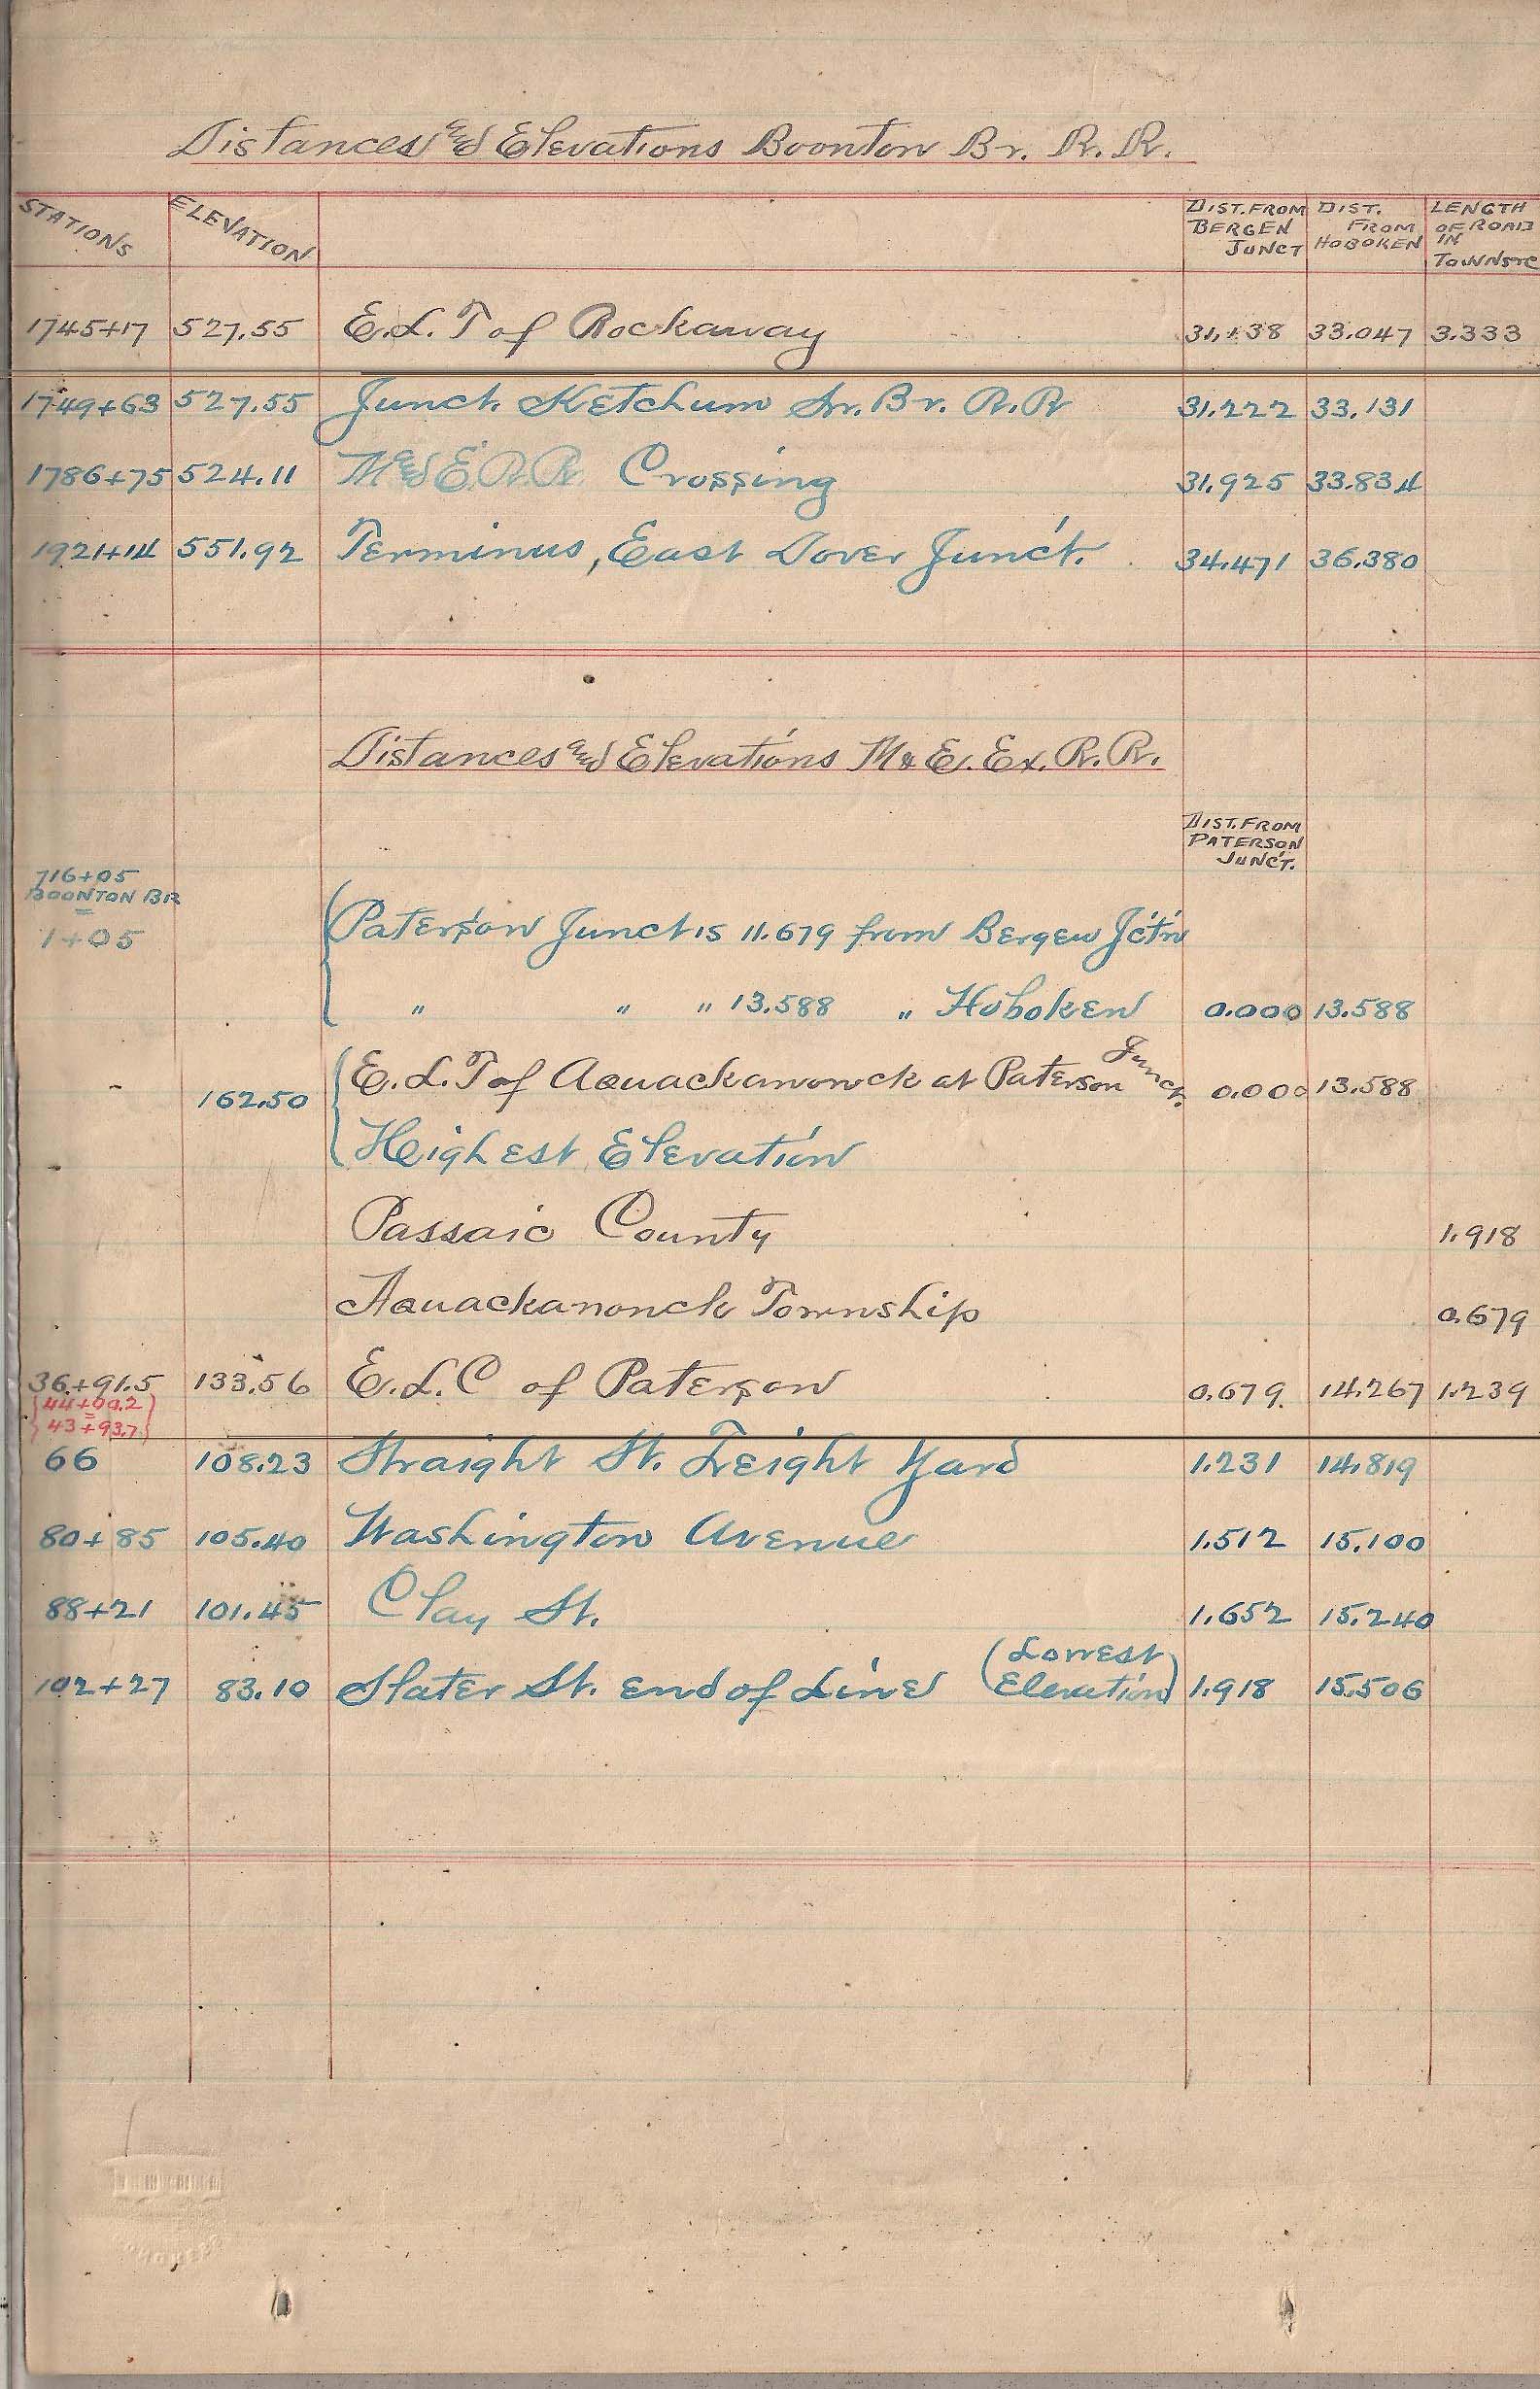 Distances and Elevations Boonton Br. R. R.
STATIONS ELEVATION DIST. FROM BERGEN JUNCT DIST. FROM HOBOKEN LENGTH OF ROAD IN TOWNS etc
1745+17 527.55 E. L. T of Rockaway 31.138 33.047 3.333
1749+63 527.55 Junct. Ketchum Br. R. R 31.222 33.131
1786+75 524.11 M and E. R. R. Crossing 31.925 33.834
1921+14 551.92 Terminus, East Dover Junct. 34.471 36.380
Distances and Elevations M & E. Ex. R. R.
DIST. FROM
PATERSON
JUNC'T.
716+05
BOONTON BR
=
1+05
Paterson Junct is 11.679 from Bergen Jct'n
" " " 13.588 " Hoboken 0.000 13.588
162.50 E. L. T of Aquackanonck at Paterson Junct. 0.000 13.588
Highest Elevation
Passaic County 1.918
Aquackanonck Township 0.679
36+91.5 133.56 E. L. C of Paterson 0.679 14.267 1.239
44+00.2
=
43+93.7
66 108.23 Straight St. Freight Yard 1.231 14.819
80+85 105.40 Washington Avenue 1.512 15.100
88+21 101.45 Clay St. 1.652 15.240
102+27 83.10 Slater St. end of Line (Lowest Elevation) 1.918 15.506